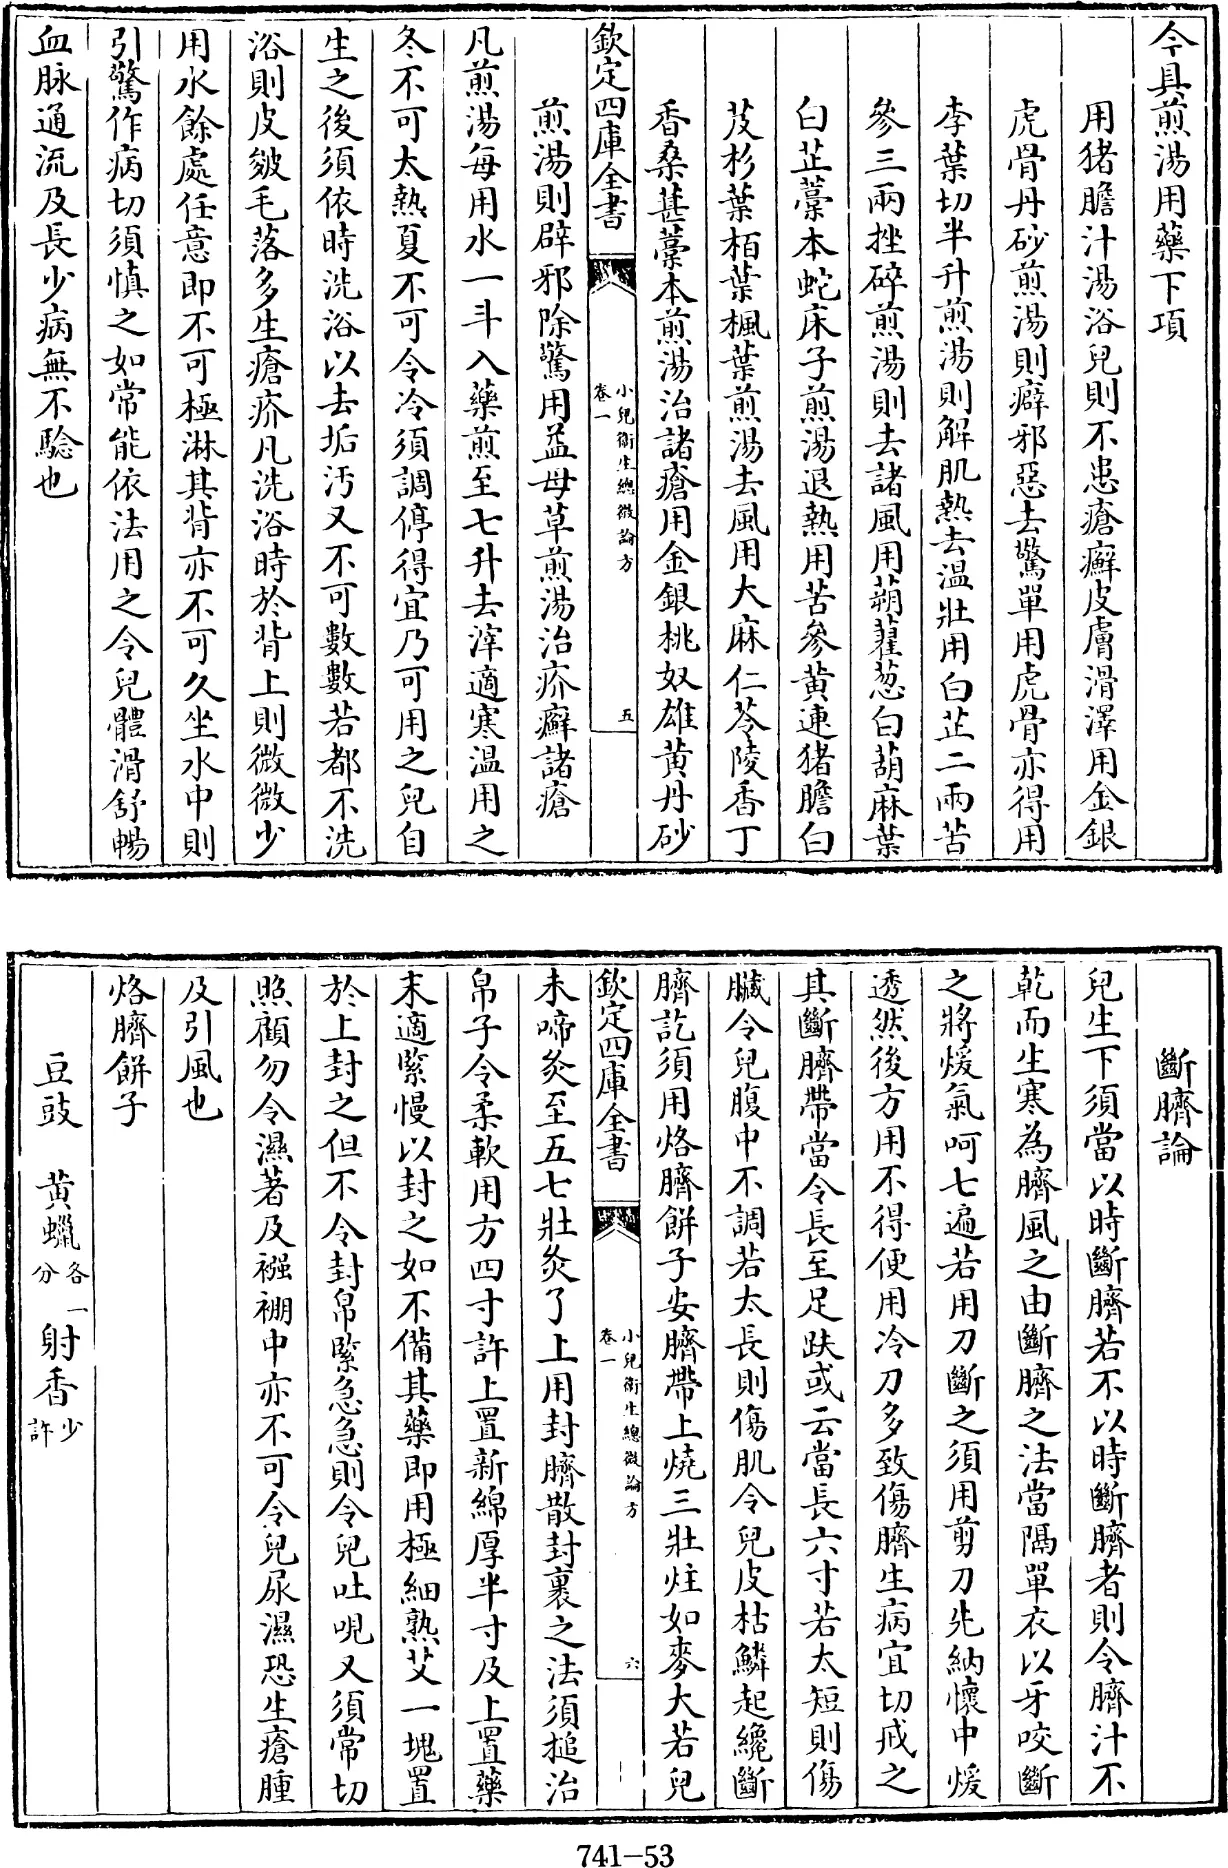 今具煎湯用藥下項
用猪膽汁湯浴兒則不患瘡癬皮膚滑澤用金銀
虎骨丹砂煎湯則癖邪惡去驚單用虎骨亦得用
李葉切半升煎湯則解肌熱去温壯用白芷二兩苦
參三兩挫碎煎湯則去諸風用蒴藋葱白葫麻葉
白芷藁本蛇床子煎湯退熱用苦參黄連猪膽白
芨杉葉栢葉楓葉煎湯去風用大麻仁苓陵香丁
香桑葚藁本煎湯治諸瘡用金銀桃奴雄黄丹砂
欽定四庫全書
小兒衛生總微論方
卷一
五
煎湯則辟邪除驚用益母草煎湯治疥癬諸瘡
凡煎湯每用水一斗入藥煎至七升去滓適寒温用之
冬不可太熱夏不可令冷須調停得宜乃可用之兒自
生之後須依時洗浴以去垢汚又不可數數若都不洗
浴則皮皴毛落多生瘡疥凡洗浴時於背上則微微少
用水餘處任意即不可極淋其背亦不可久坐水中則
引驚作病切須慎之如常能依法用之令兒體滑舒暢
血脉通流及長少病無不驗也
斷臍論
兒生下須當以時斷臍若不以時斷臍者則令臍汁不
乾而生寒為臍風之由斷臍之法當隔單衣以牙咬斷
之將煖氣呵七遍若用刀斷之須用剪刀先納懷中煖
透然後方用不得便用冷刀多致傷臍生病宜切戒之
其斷臍帶當令長至足趺或云當長六寸若太短則傷
臟令兒腹中不調若太長則傷肌令兒皮枯鱗起纔斷
臍訖須用烙臍餅子安臍帶上燒三壯炷如麥大若兒
欽定四庫全書
小兒衛生總微論方
卷一
六
未啼灸至五七壯灸了上用封臍散封裹之法須搥治
帛子令柔軟用方四寸許上置新綿厚半寸及上置藥
末適緊慢以封之如不備其藥即用極細熟艾一塊置
於上封之但不令封帛緊急急則令兒吐哯又須常切
照顧勿令濕著及襁褓中亦不可令兒尿濕恐生瘡腫
及引風也
烙臍餅子
豆豉 黄蠟各一分 射香少許
741-53